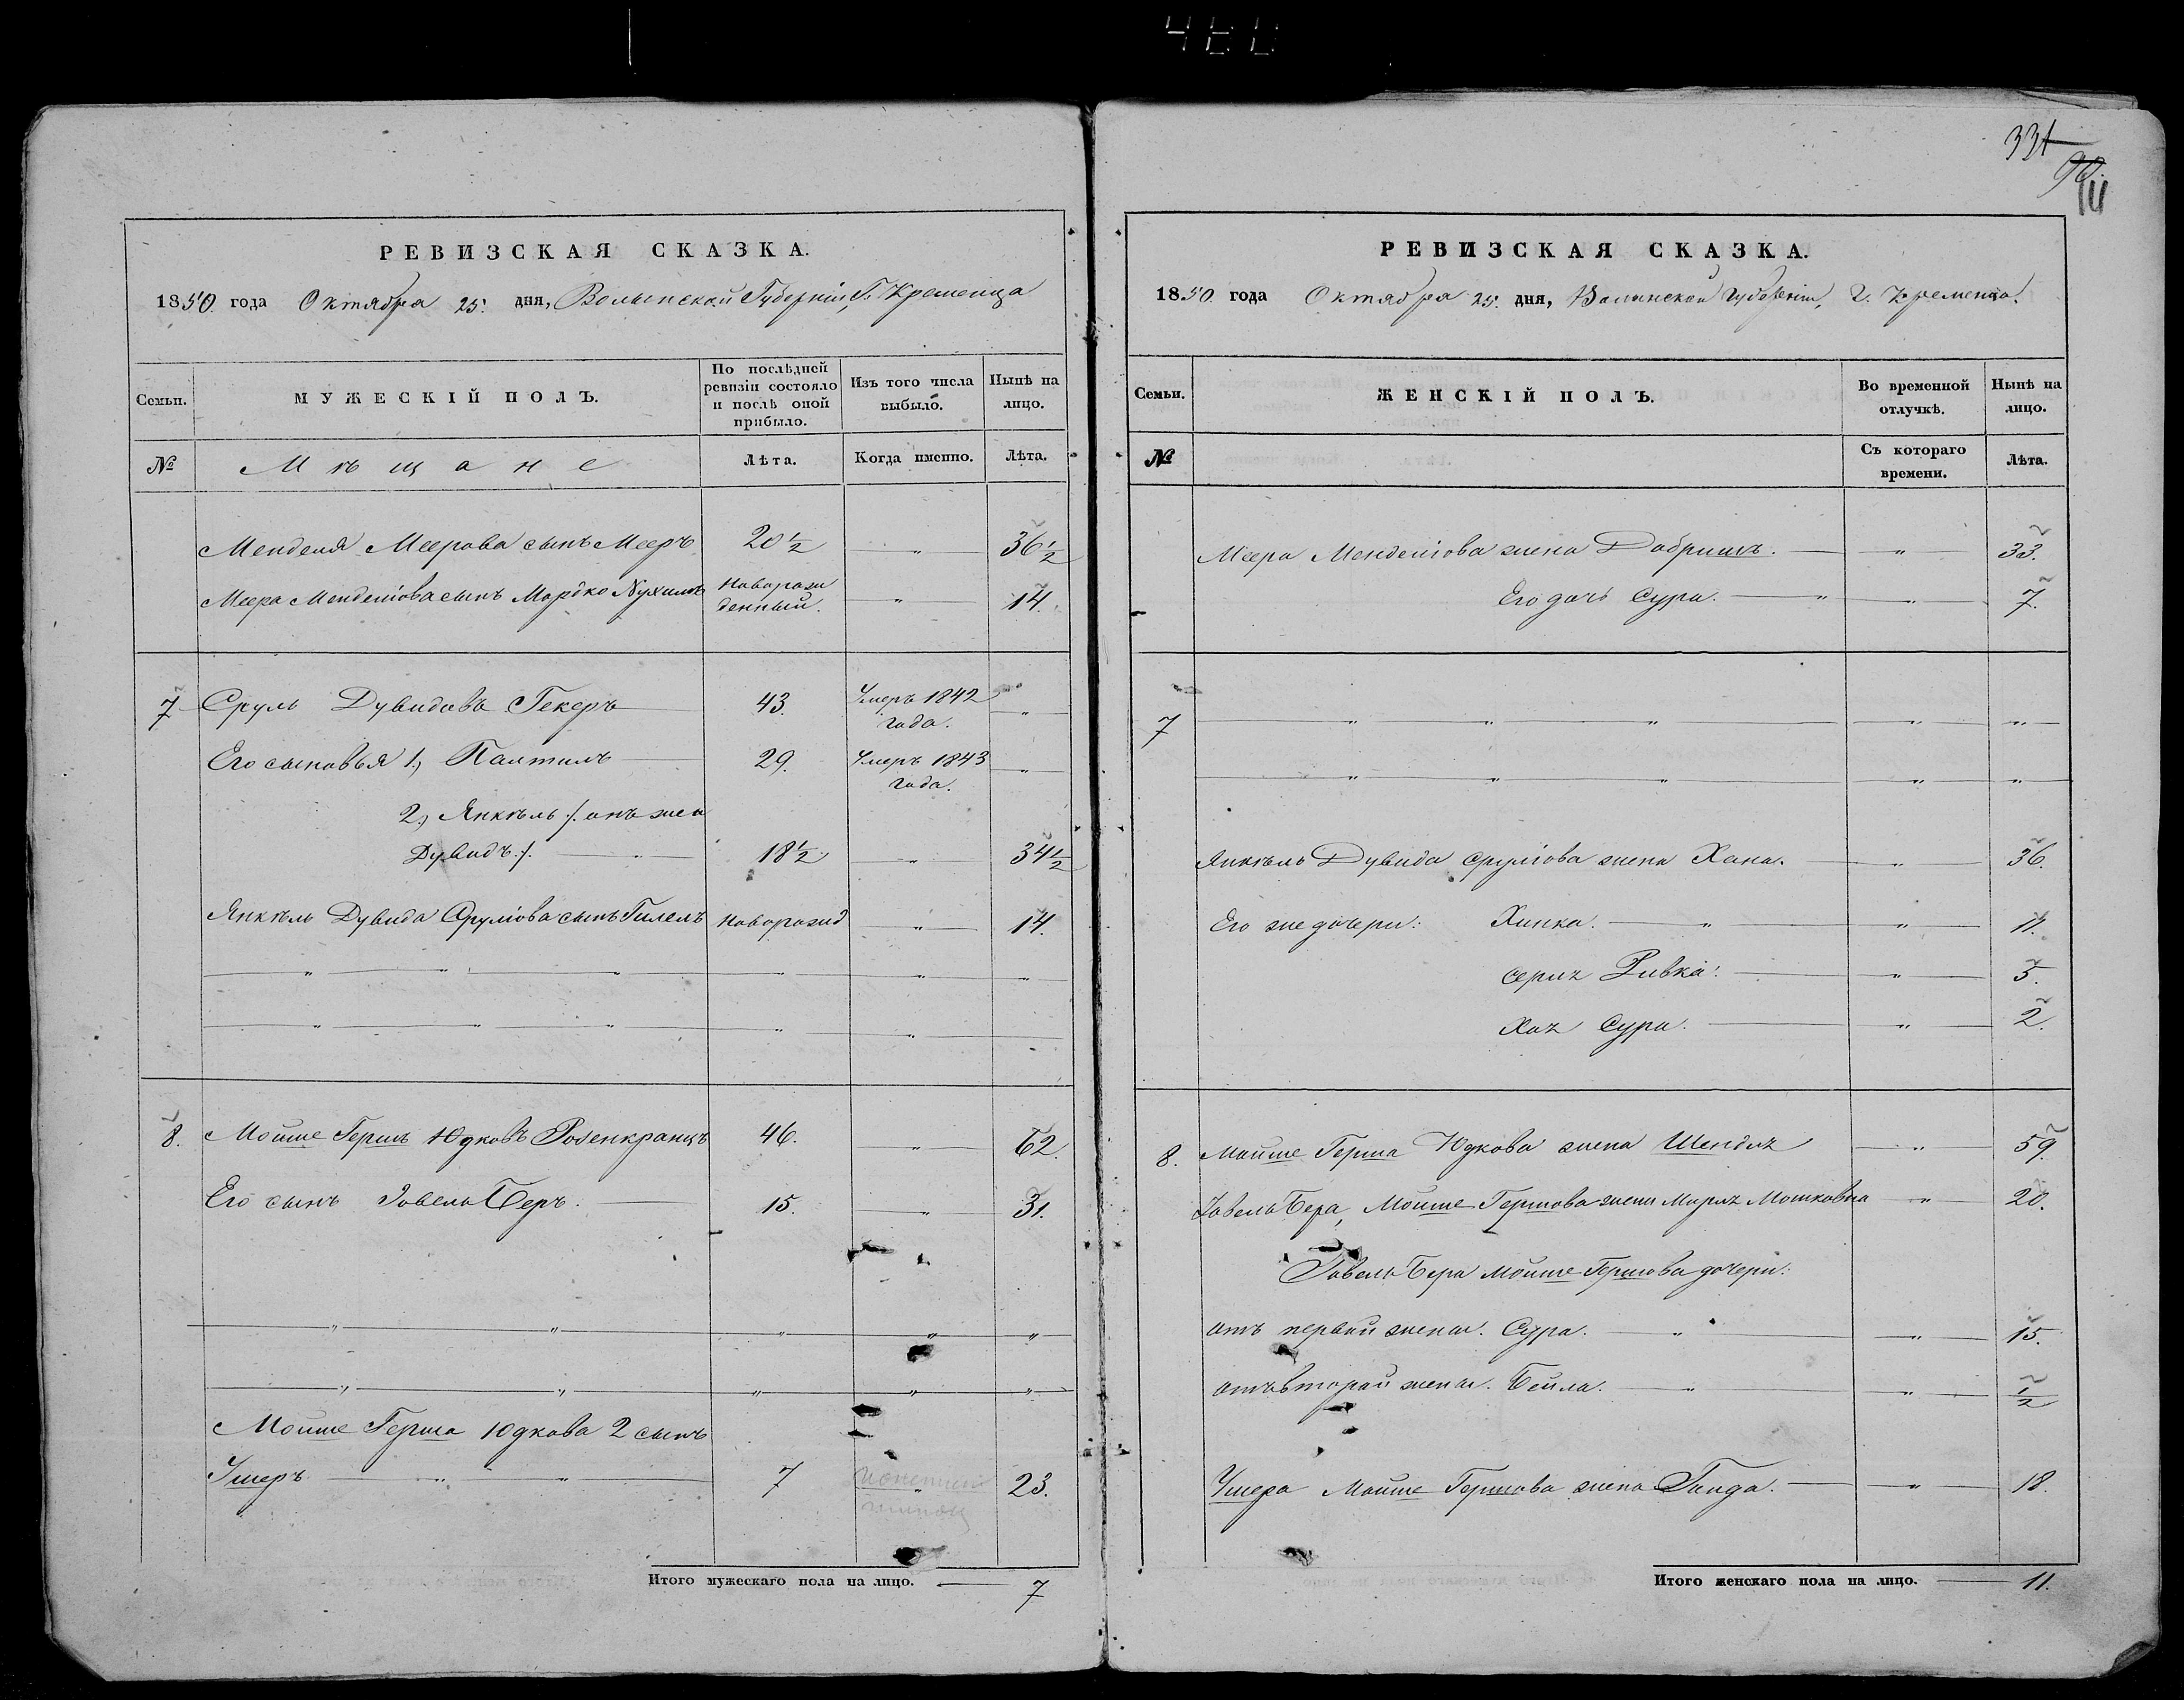 460
331
РЕВИЗСКАЯ СКАЗКА.
1850 года Октября 25. дня, Волынской Губерніи, Г. Кременца
Семьи.
МУЖЕСКІЙ ПОЛЪ.
По послѣдней ревизіи состояло и послѣ оной прибыло.
Изъ того числа выбыло.
Нынѣ на лицо.
№
Мѣщане
Лѣта.
Когда именно.
Лѣта.
Менделя Меерова сынъ Мееръ 20 1/2 " 36 1/2
Меера Менделіова сынъ Мордко Нухимъ Новорож
денный. " 14.
7 Сруль Дувидовъ Гекеръ 43. Умеръ 1842
года. "
Его сыновья 1., Палтилъ 29. Умеръ 1843
года. "
2., Янкѣль /. онъ же и
Дувидъ ./. " 18 1/2 " 34 1/2
Янкѣль Дувида Аруліова сынъ Гилелъ Новорожд " 14.
" " " " " "
" " " " "
8. Мойше Гершъ Юдковъ Розенкранцъ 46. " 62.
Его сынъ Іовель Беръ. 15. " 31.
" " " " "
" " " " "
Мойше Герша Юдкова 2 сынъ
Умеръ " " 7 " 23.
Итого мужескаго пола на лицо. 7
РЕВИЗСКАЯ СКАЗКА.
1850 года Октября 25. дня, Волынской Губерніи, Г. Кременца.
Семьи.
ЖЕНСКІЙ ПОЛЪ.
Во временной отлучкѣ.
Нынѣ на лицо.
№
Съ котораго времени.
Лѣта.
Меера Менделіова жена Добришъ. " 33.
Его дочь Сура. " " 7.
7 " " " " "
" " " " "
Янкѣль Дувида Сруліова жена Хана. " 36.
Его же дочери: Хинка. " " 11.
Ривка. " 5.
Хая Сура. " 2.
8. Мойше Герша Юдкова жена Шендля " 59.
Іовель Бера, Мойше Гершова жена Мирія Мошковна " 20.
Іовель Бера Мойше Гершова дочери:
отъ первой жены. Сура. " " 15.
отъ второй жены. Бейла. " " 1/2
Умера Мойше Гершова жена Гинда. " 18.
Итого женскаго пола на лицо. 11.